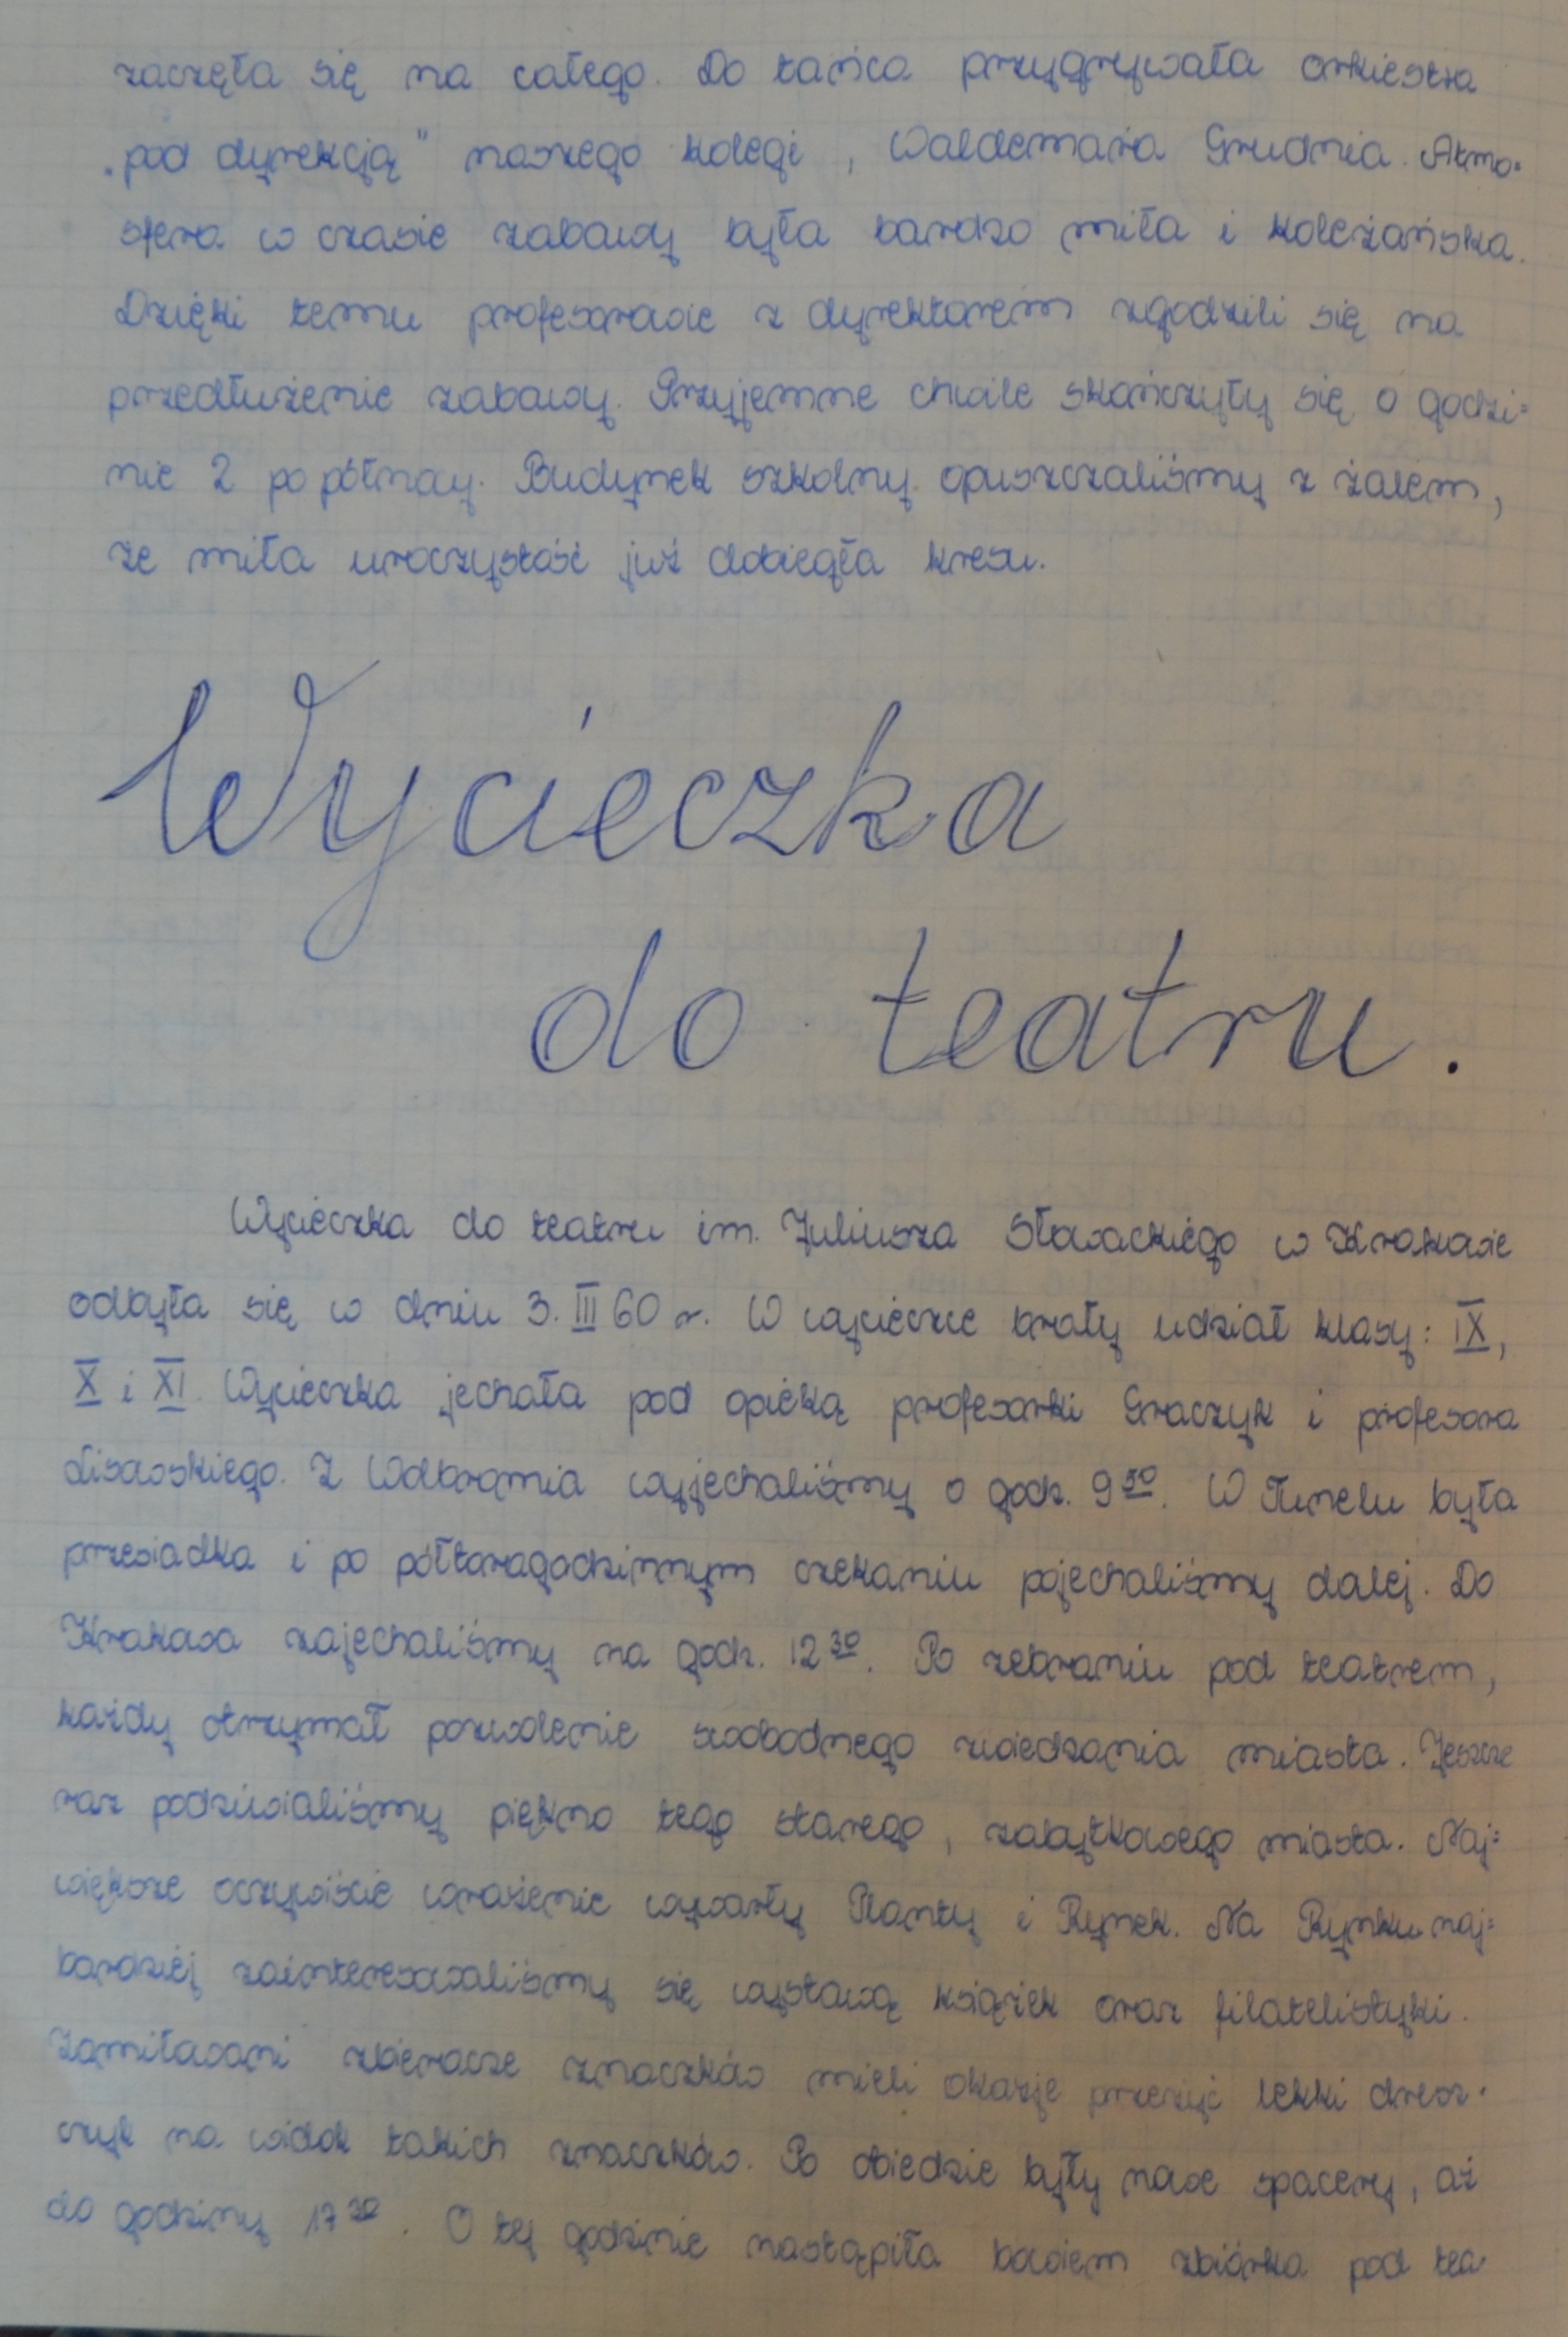 zaczęła się na całego. Do tańca przygrywała orkiestra
„pod dyrekcją" naszego kolegi, Waldemara Grudnia. Atmo=
sfera w czasie zabawy była bardzo miła i koleżańska.
Dzięki temu profesorowie z dyrektorem zgodzili się na
przedłużenie zabawy. Przyjemne chwile skończyły się o godzi=
nie 2 po północy. Budynek szkolny opuszczaliśmy z żalem,
że miła uroczystość już dobiegła kresu.
Wycieczka
do teatru.
Wycieczka do teatru im. Juliusza Słowackiego w Krakowie
odbyła się w dniu 3. III 60 r. W wycieczce brały udział klasy: IX,
X i XI. Wycieczka jechała pod opieką profesorki Graczyk i profesora
Lisowskiego. Z Wolbromia wyjechaliśmy o godz. 9 50. W Tunelu była
przesiadka i po półtoragodzinnym czekaniu pojechaliśmy dalej. Do
Krakowa zajechaliśmy na godz. 12 30. Po zebraniu pod teatrem,
każdy otrzymał pozwolenie swobodnego zwiedzania miasta. Jeszcze
raz podziwialiśmy piękno tego starego, zabytkowego miasta. Naj=
większe oczywiście wrażenie wywarły Planty i Rynek. Na Rynku naj=
bardziej zainteresowaliśmy się wystawą książek oraz filatelistyki.
Zamiłowani zbieracze znaczków mieli okazje przeżyć lekki dresz-
czyk na widok takich znaczków. Po obiedzie były nowe spacery, aż
do godziny 17 30. O tej godzinie nastąpiła bowiem zbiórka pod tea-